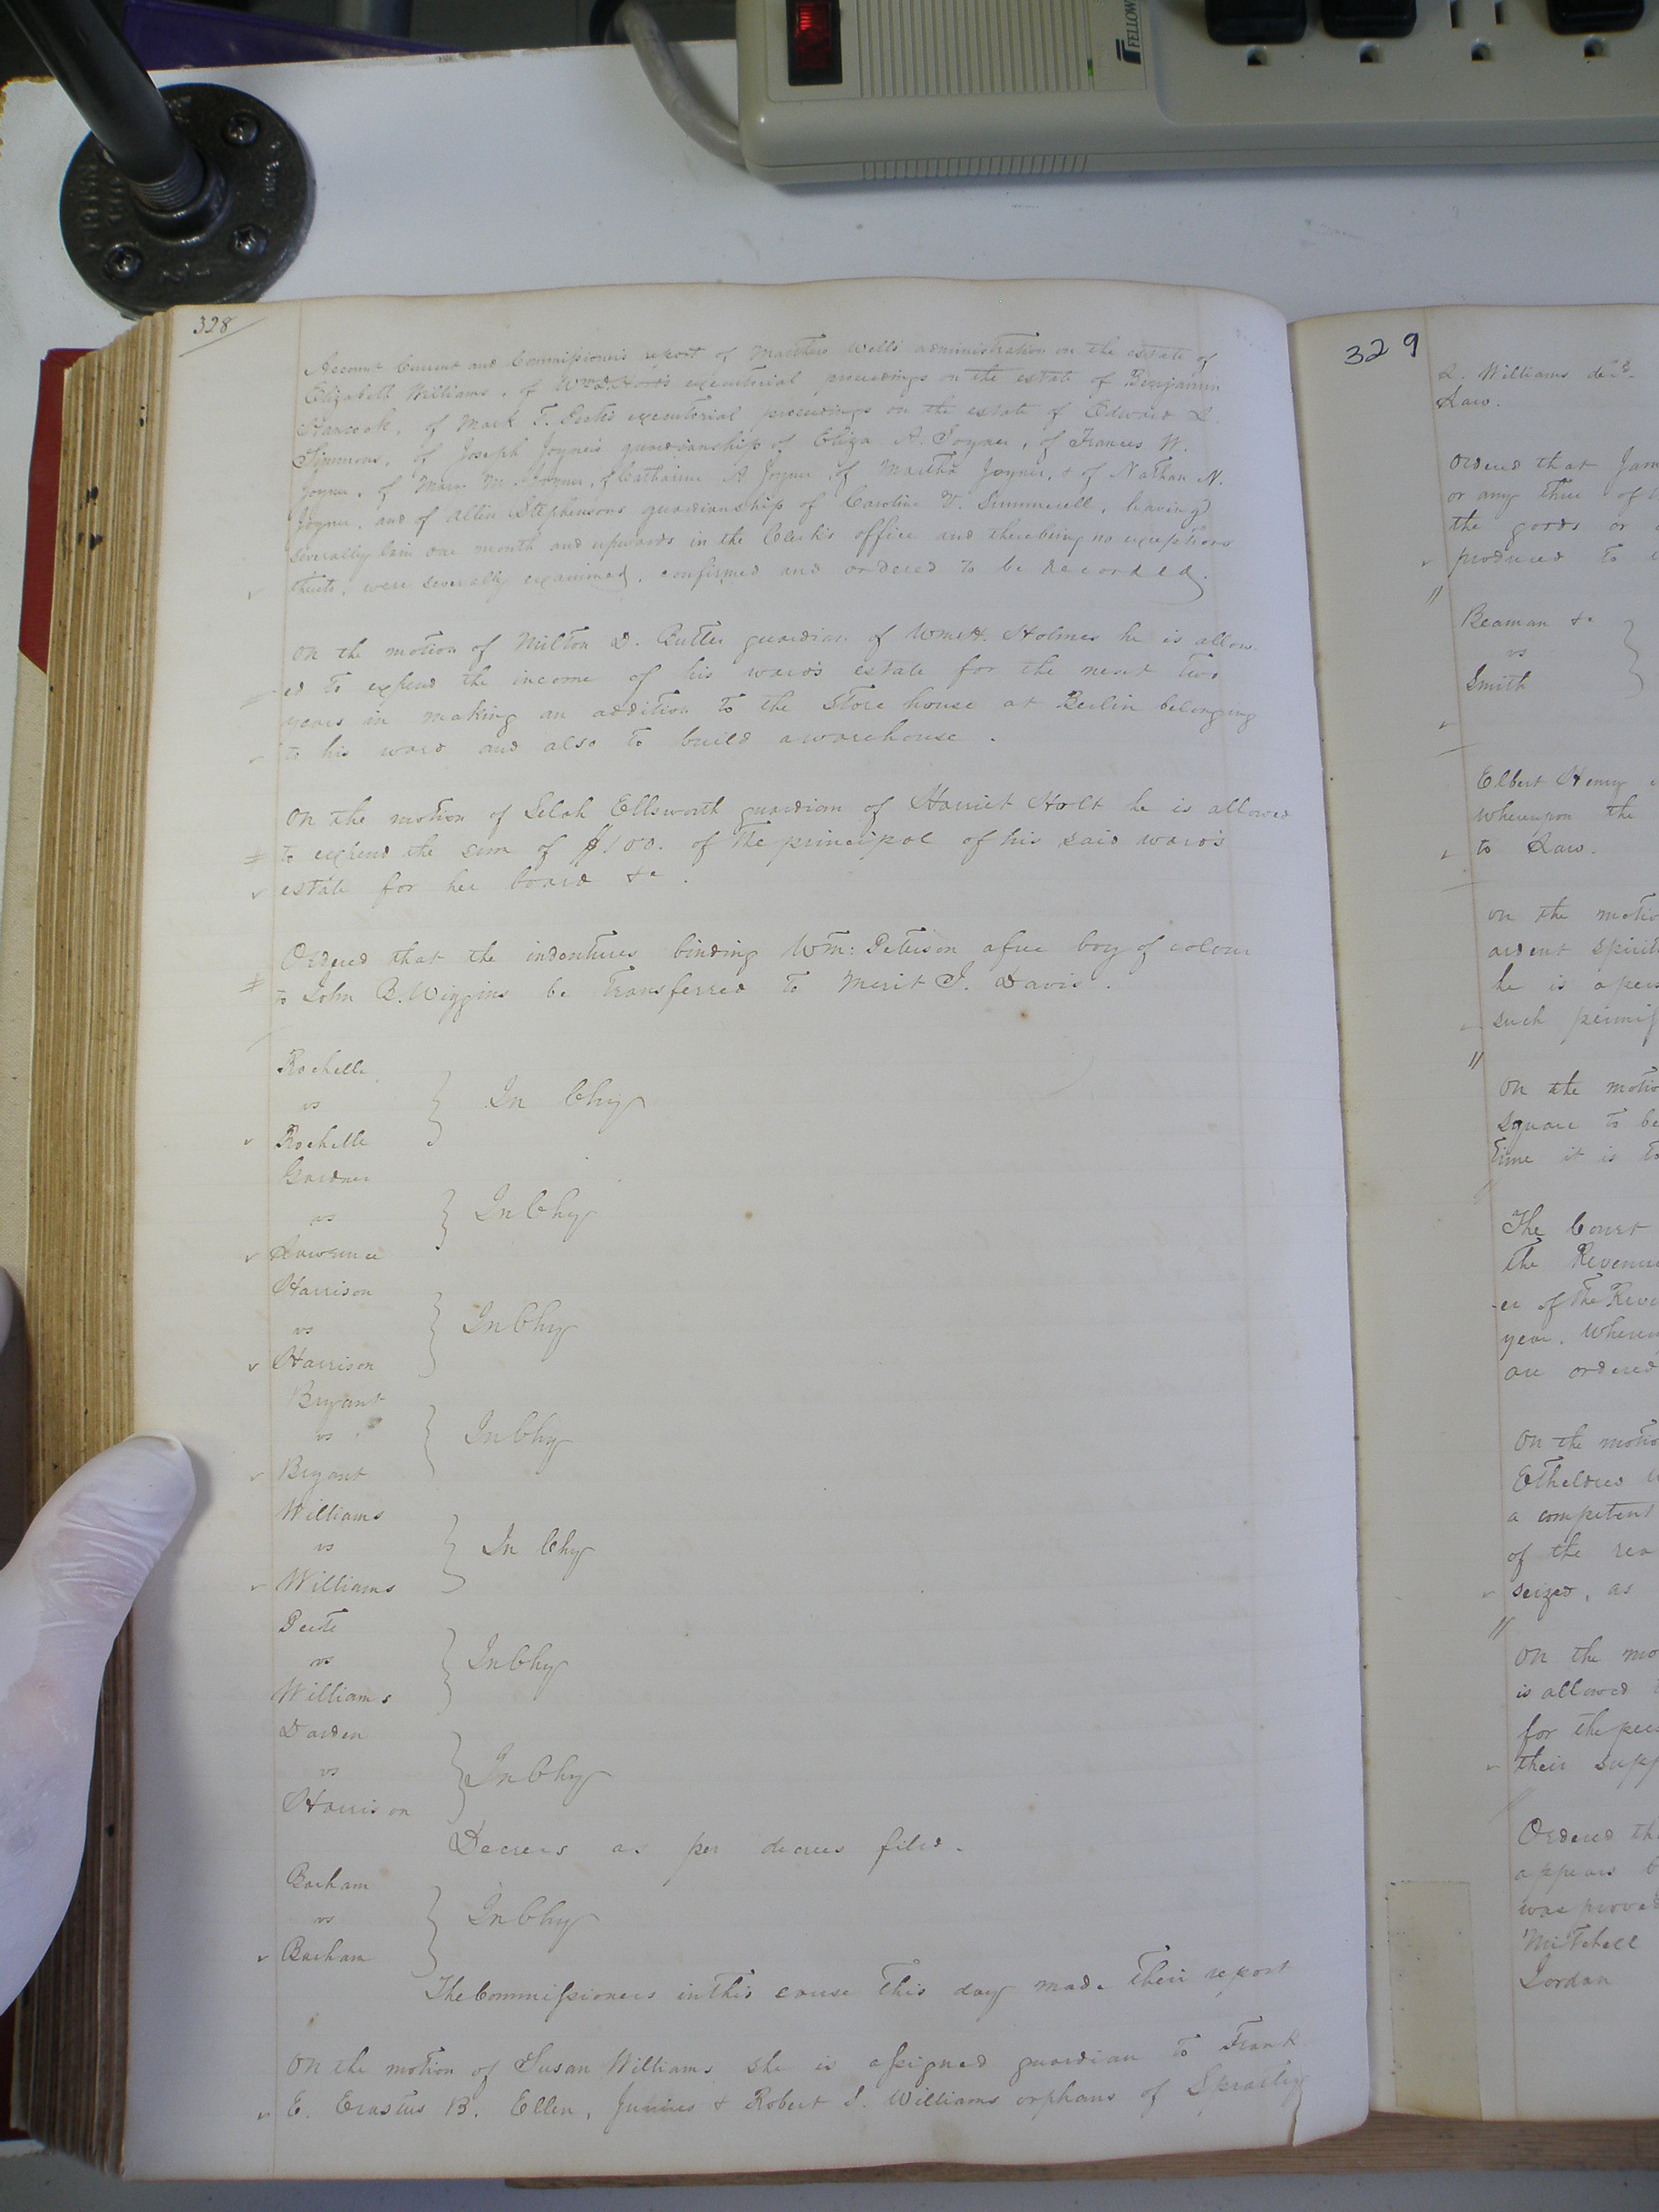 FELLOW
328
Account Current and Commissioners report of Matthew Wells administration on the estate of
Elizabeth Williams, of executorial proceedings on the estate of Benjamin
Hancock, of Mark T. Peete's executorial proceedings on the estate of Edward L.
Simmons, of Joseph Joyner's guardianship of Eliza A. Joyner, of Frances W.
Joyner, of Mary M. Joyner, of Catharine A Joyner, of Martha Joyner, & of Nathan N.
Joyner, and of Allen Stephensons guardianship of Caroline V. Summerell, having
severally lain one month and upwards in the Clerk's office and there being no exceptions
thereto, were severally examined, confirmed and ordered to be Recorded.
On the motion of Milton D. Butler guardian of Wm H. Holmes he is allow-
ed to expend the income of his ward's estate for the next two
years in making an addition to the Store house at Berlin belonging
to his ward and also to build a warehouse.
On the motion of Selah Ellsworth guardian of Harriet Holt he is allowed
to expend the sum of $100. of the principal of his said ward's
estate for her board &c.
Ordered that the indentures binding Wm: Peterson a free boy of colour
to John B. Wiggins be transferred to Merit J. Davis.
Rochelle
vs } In Chy
Rochelle
Gardner
vs } In Chy
Lawrence
Harrison
vs } In Chy
Harrison
Bryant
vs } In Chy
Bryant
Williams
vs } In Chy
Williams
Peete
vs } In Chy
Williams
Darden
vs } In Chy
Harrison
Decrees as per decrees filed.
Barham
vs } In Chy
Barham
The Commissioners in this cause this day made their report
On the motion of Susan Williams she is assigned guardian to Frank
E. Erastus B. Ellen, Junius & Robert S. Williams orphans of Spratley
329
L. Williams decd.
Law.
Ordered that Jam
or any three of
the goods or
produced to
Beaman &c
vs
Smith
Elbert Henry
whereupon the
to Law.
on the motio
ardent spirit
he is a pers
such permis
On the motio
square to be
time it is to
The Court
the Revenue
-er of the Reve
year. Whereu
are ordered
On the motio
Etheldred W
a competent
of the rea
seized, as
On the mo
is allowed
for the pur
their supp
Ordered tha
appears
was proved
Mitchell
Jordan